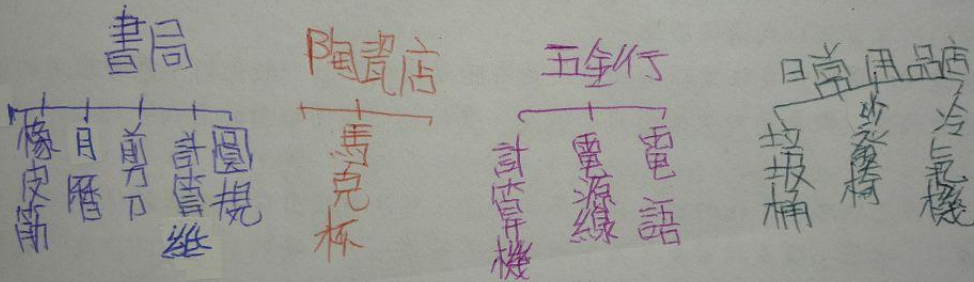 書局
橡皮筋
月曆
剪刀
計算紙
圓規
陶瓷店
馬克杯
五金行
計算機
電源線
電語
日常用品店
垃圾桶
沙發椅
冷氣機